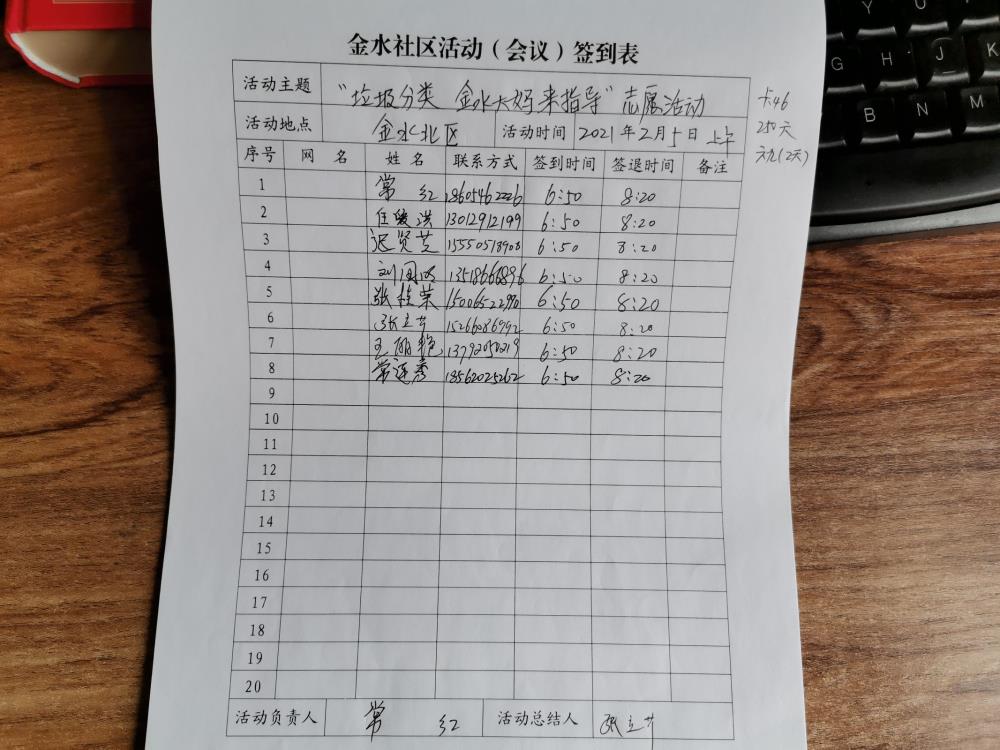 金水社区活动（会议）签到表
活动主题 "垃圾分类 金水大妈来指导"志愿活动
活动地点 金水北区 活动时间 2021年2月5日 上午
卡46
250元
序号 网名 姓名 联系方式 签到时间 签退时间 备注
1 常红 18605462226 6:50 8:20
2 任爱洪 13012912199 6:50 8:20
3 迟贤芝 15550518908 6:50 8:20
4 13518666896 6:50 8:20
5 张桂荣 15006522970 6:50 8:20
6 张立芹 15266086992 6:50 8:20
7 王丽艳 13792050219 6:50 8:20
8 常连秀 18562025262 6:50 8:20
9
10
11
12
13
14
15
16
17
18
19
20
活动负责人 常红 活动总结人 张立芹
Y U
G H J K
B N M